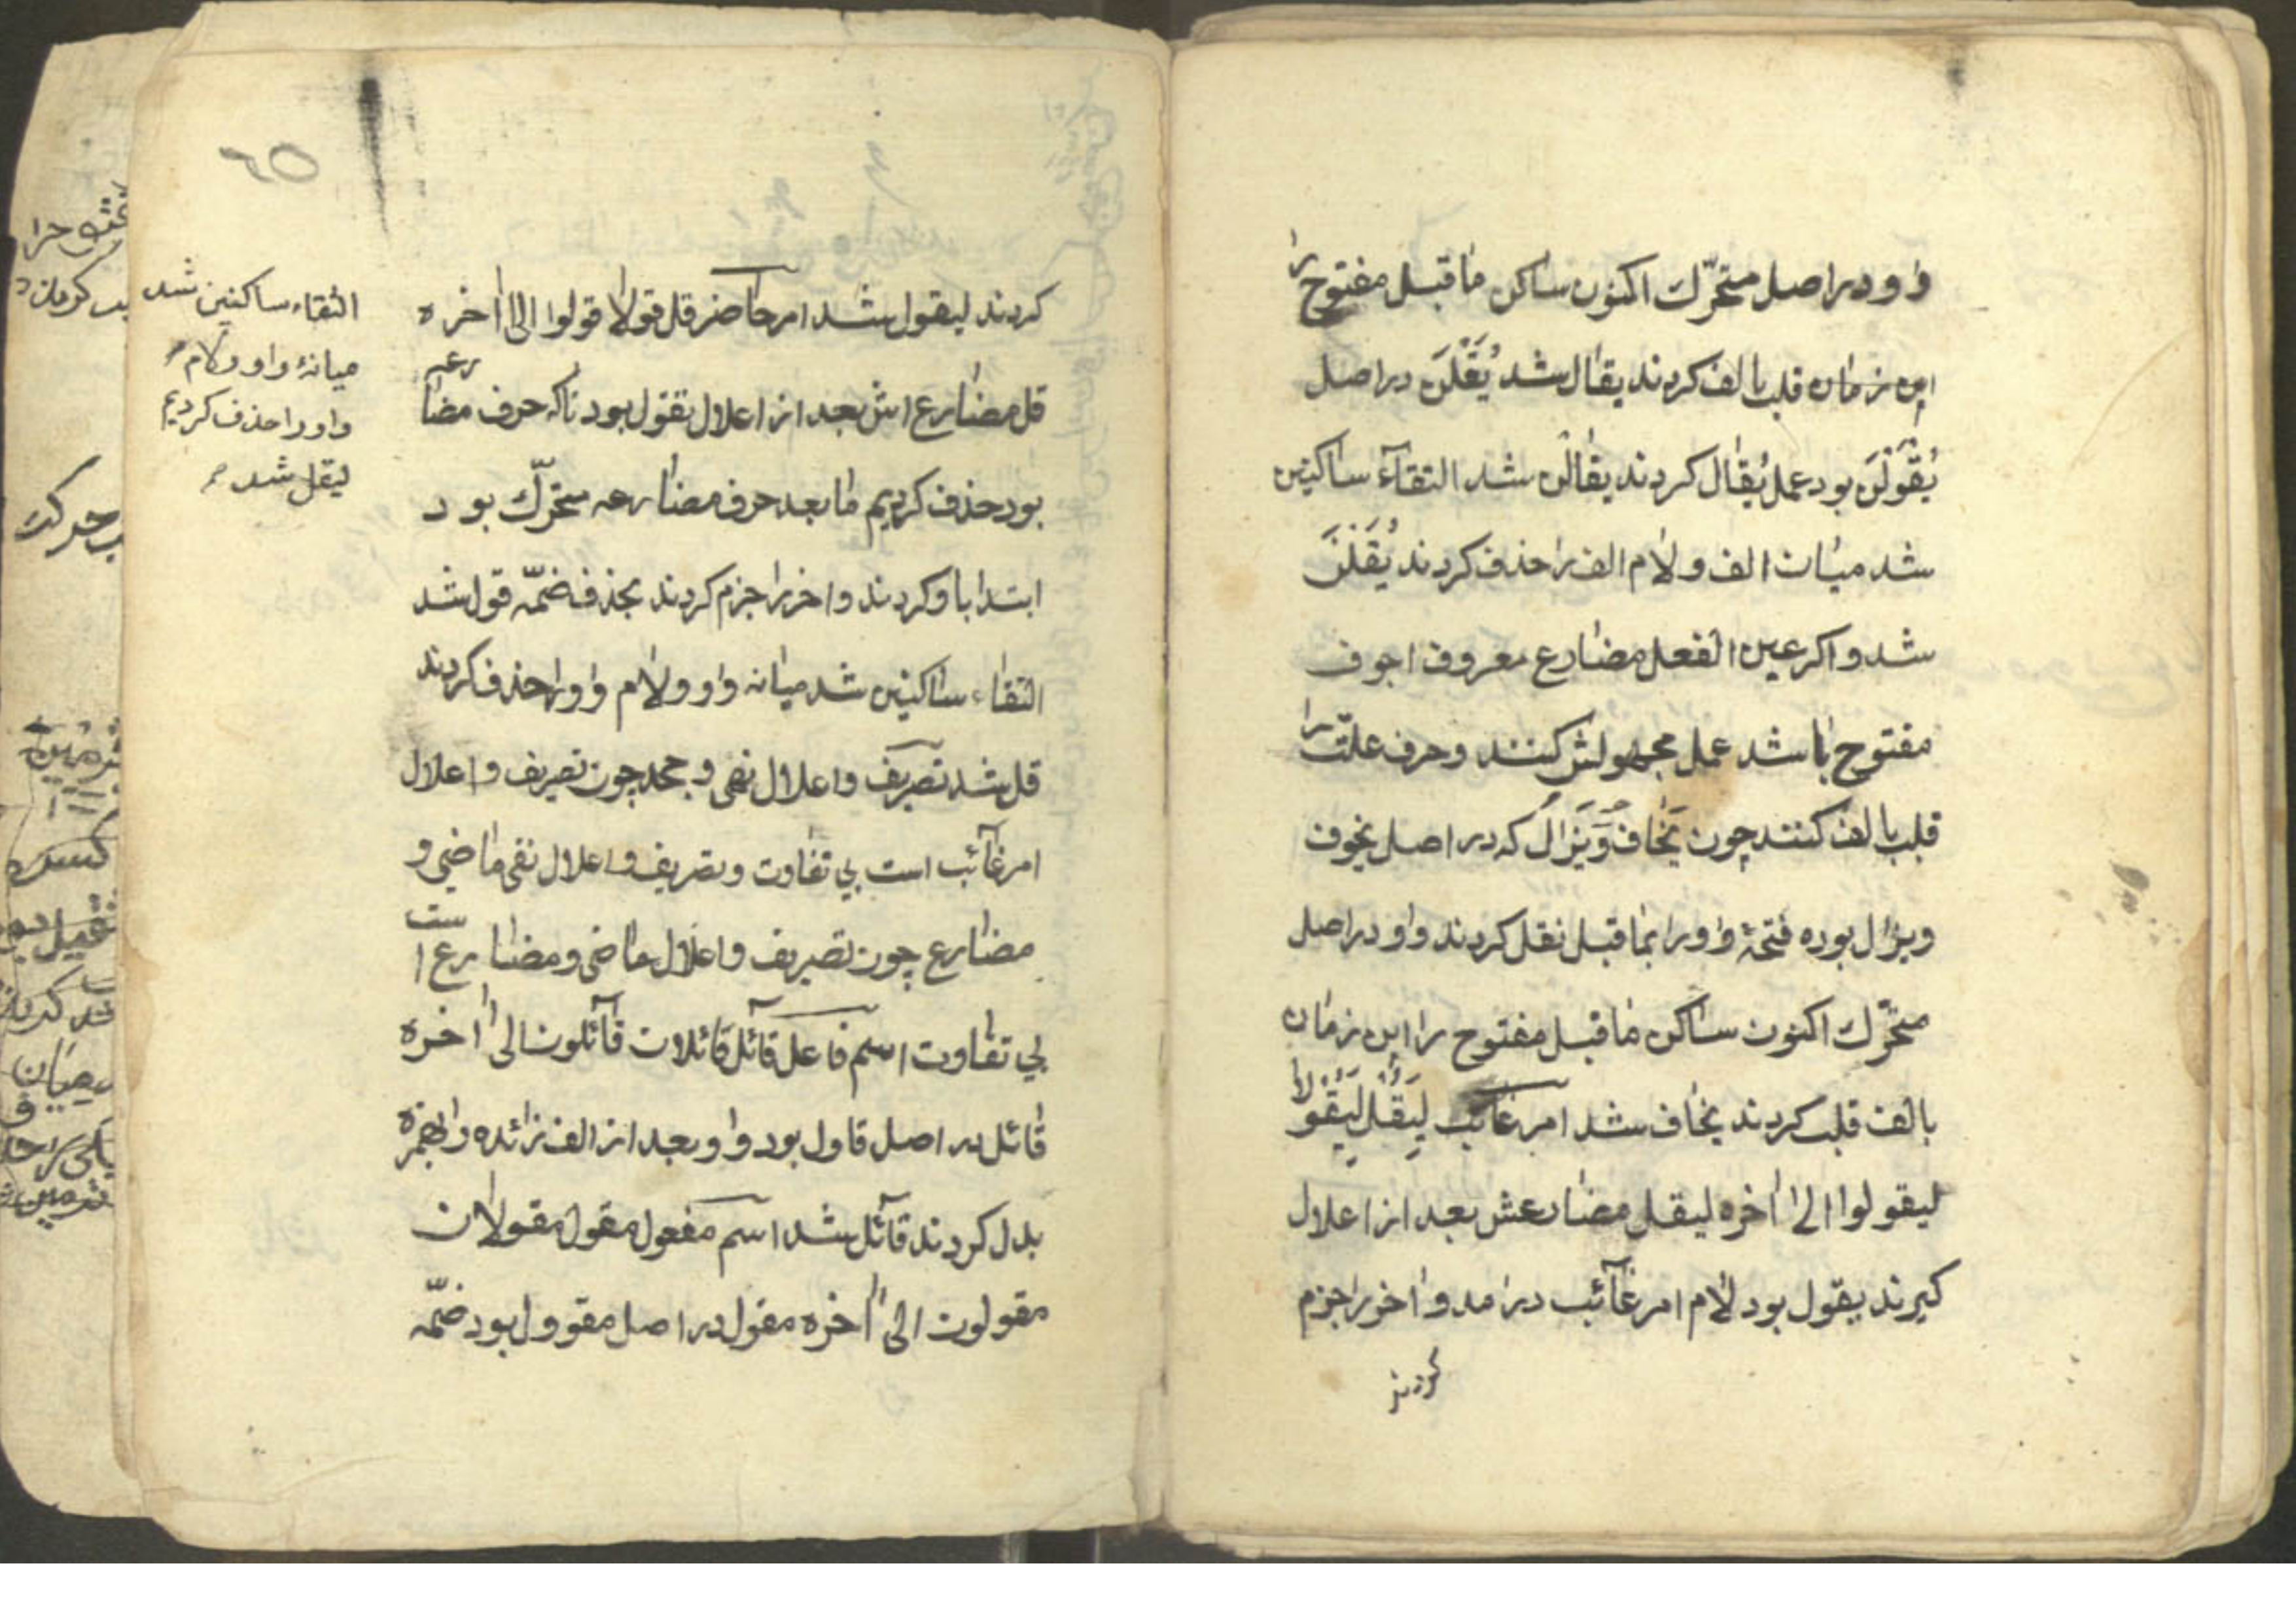 واو در اصل متحرّك اكنون ساكن ماقبل مفتوح را
اين زمان قلب بالف كردند يقال شد يُقَلْنَ در اصل
يُقْوَلْنَ بود عمل يُقال كردند يقالْن شد التقآء ساكنين
شد ميان الف و لام الف را حذف كردند يُقَلْنَ
شد و اكر عين الفعل مضارع معروف اجوف
مفتوح باشد عمل مجهولش كنند و حرف علّت را
قلب بالف كنند چون يَخاف وَيَزال كه در اصل يخوف
ويزال بوده فتحهٔ واو را بماقبل نقل كردند واو در اصل
متحرّك اكنون ساكن ماقبل مفتوح را اين زمان
بالف قلب كردند يخاف شد امر غائب لِيَقُلْ لِيَقُولا
ليقولوا الى اخره ليقل مضارعش بعد از اعلال
كيرند يقول بود لام امر غآئب درامد و اخر را جزم
كردند
٦٥
كردند ليقول شد امر حاضر قل قولا قولوا الى اخره
قل مضارع اش بعد از اعلال تقول بود تا كه حرف مضارعه
بود حذف كرديم مابعد حرف مضارعه متحرّك بود
ابتدا باو كردند و اخر را جزم كردند بحذف ضمّه قول شد
التقاء ساكنين شد ميانه واو و لام واو را حذف كردند
قل شد تصريف و اعلال نهى و جحد چون تصريف و اعلال
امر غآئب است بي تفاوت و تصريف و اعلال نفى ماضي و
مضارع چون تصريف و اعلال ماضى و مضارع است
بي تفاوت اسم فاعل قائل قائلان قآئلون الى اخره
قائل در اصل قاول بود واو بعد از الف زائده را بهمزه
بدل كردند قآئل شد اسم مفعول مقول مقولان
مقولون الى اخره مقول در اصل مقوول بود ضمّه
التقاء ساكنين شد
ميانهٔ واو و لام
واو را حذف كرديم
ليقل شد